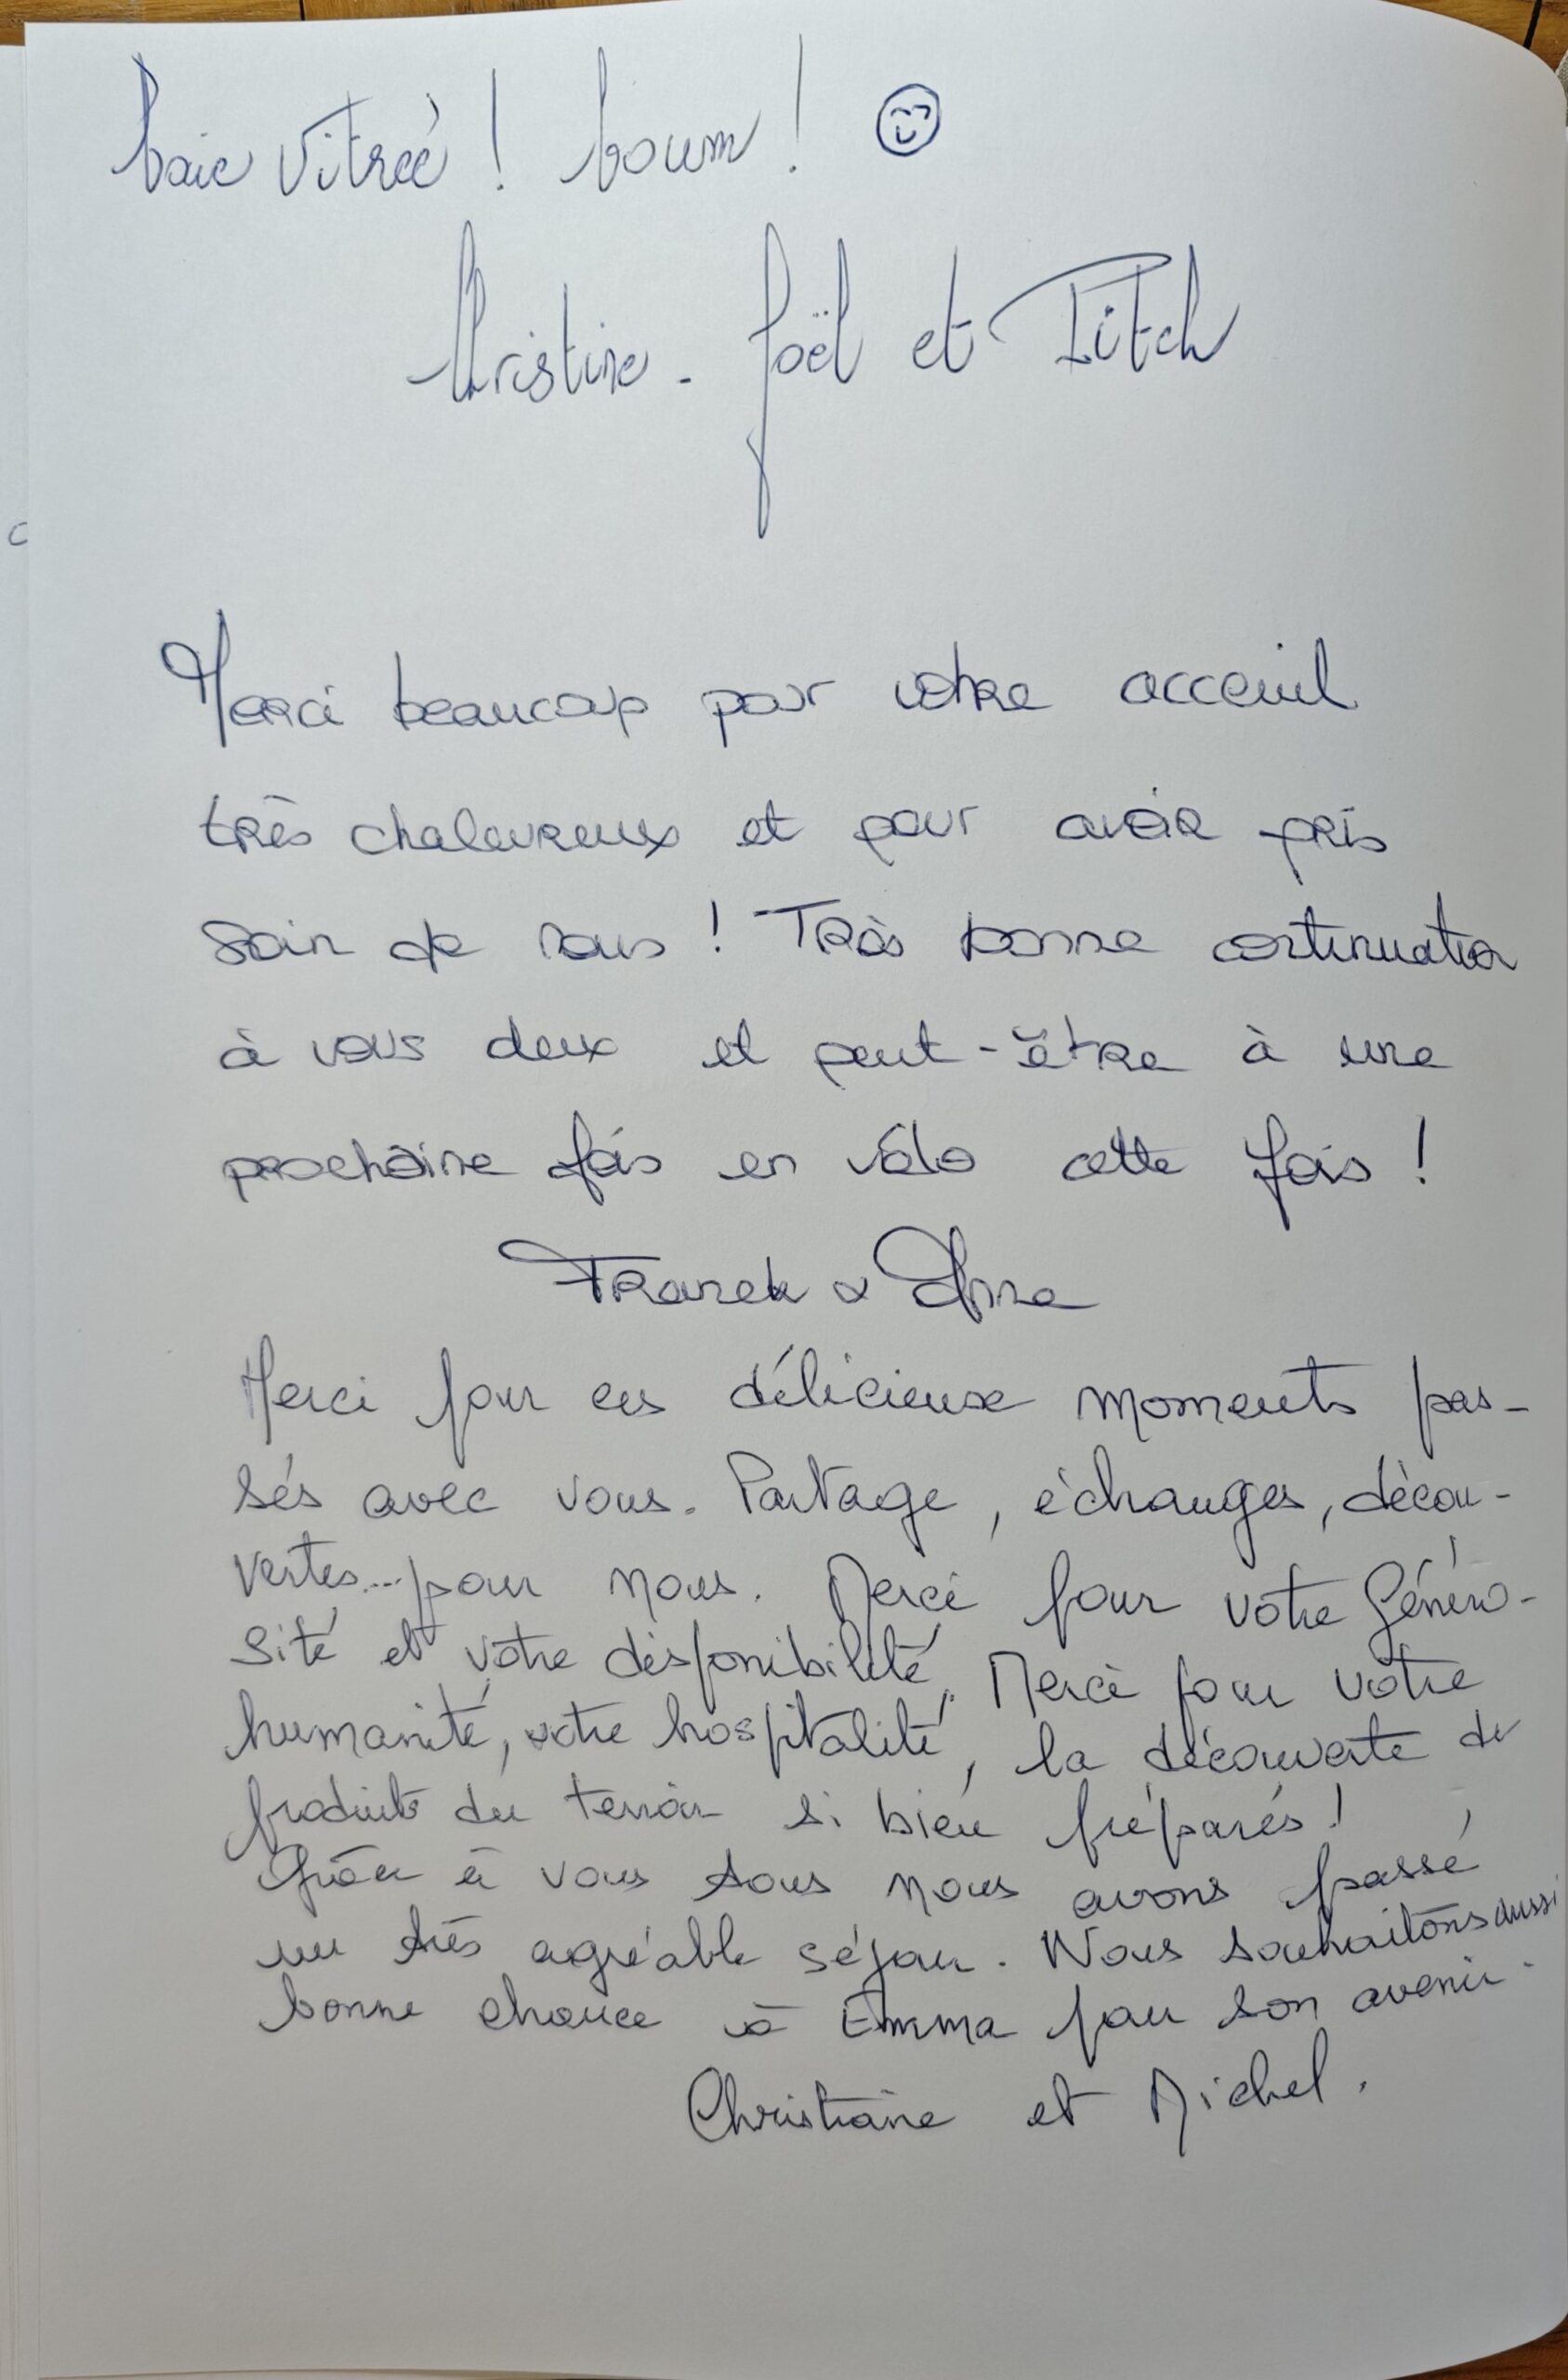 baie vitrée ! boum !
Christine - Joël et Fitch
Merci beaucoup pour votre acceuil
très chaleureux et pour avoir pris
soin de nous ! Très bonne continuation
à vous deux et peut-être à une
prochaine fois en vélo cette fois !
Franck & Anne
Merci pour ces délicieux moments pas-
sés avec vous. Partage, échanges, décou-
vertes... pour nous. Merci pour votre généro-
sité et votre disponibilité. Merci pour votre
humanité, votre hospitalité, la découverte de
produits du terroir si bien préparés !
Grâce à vous tous nous avons passé
un très agréable séjour. Nous souhaitons aussi
bonne chance à Emma pour son avenir.
Christiane et Michel.